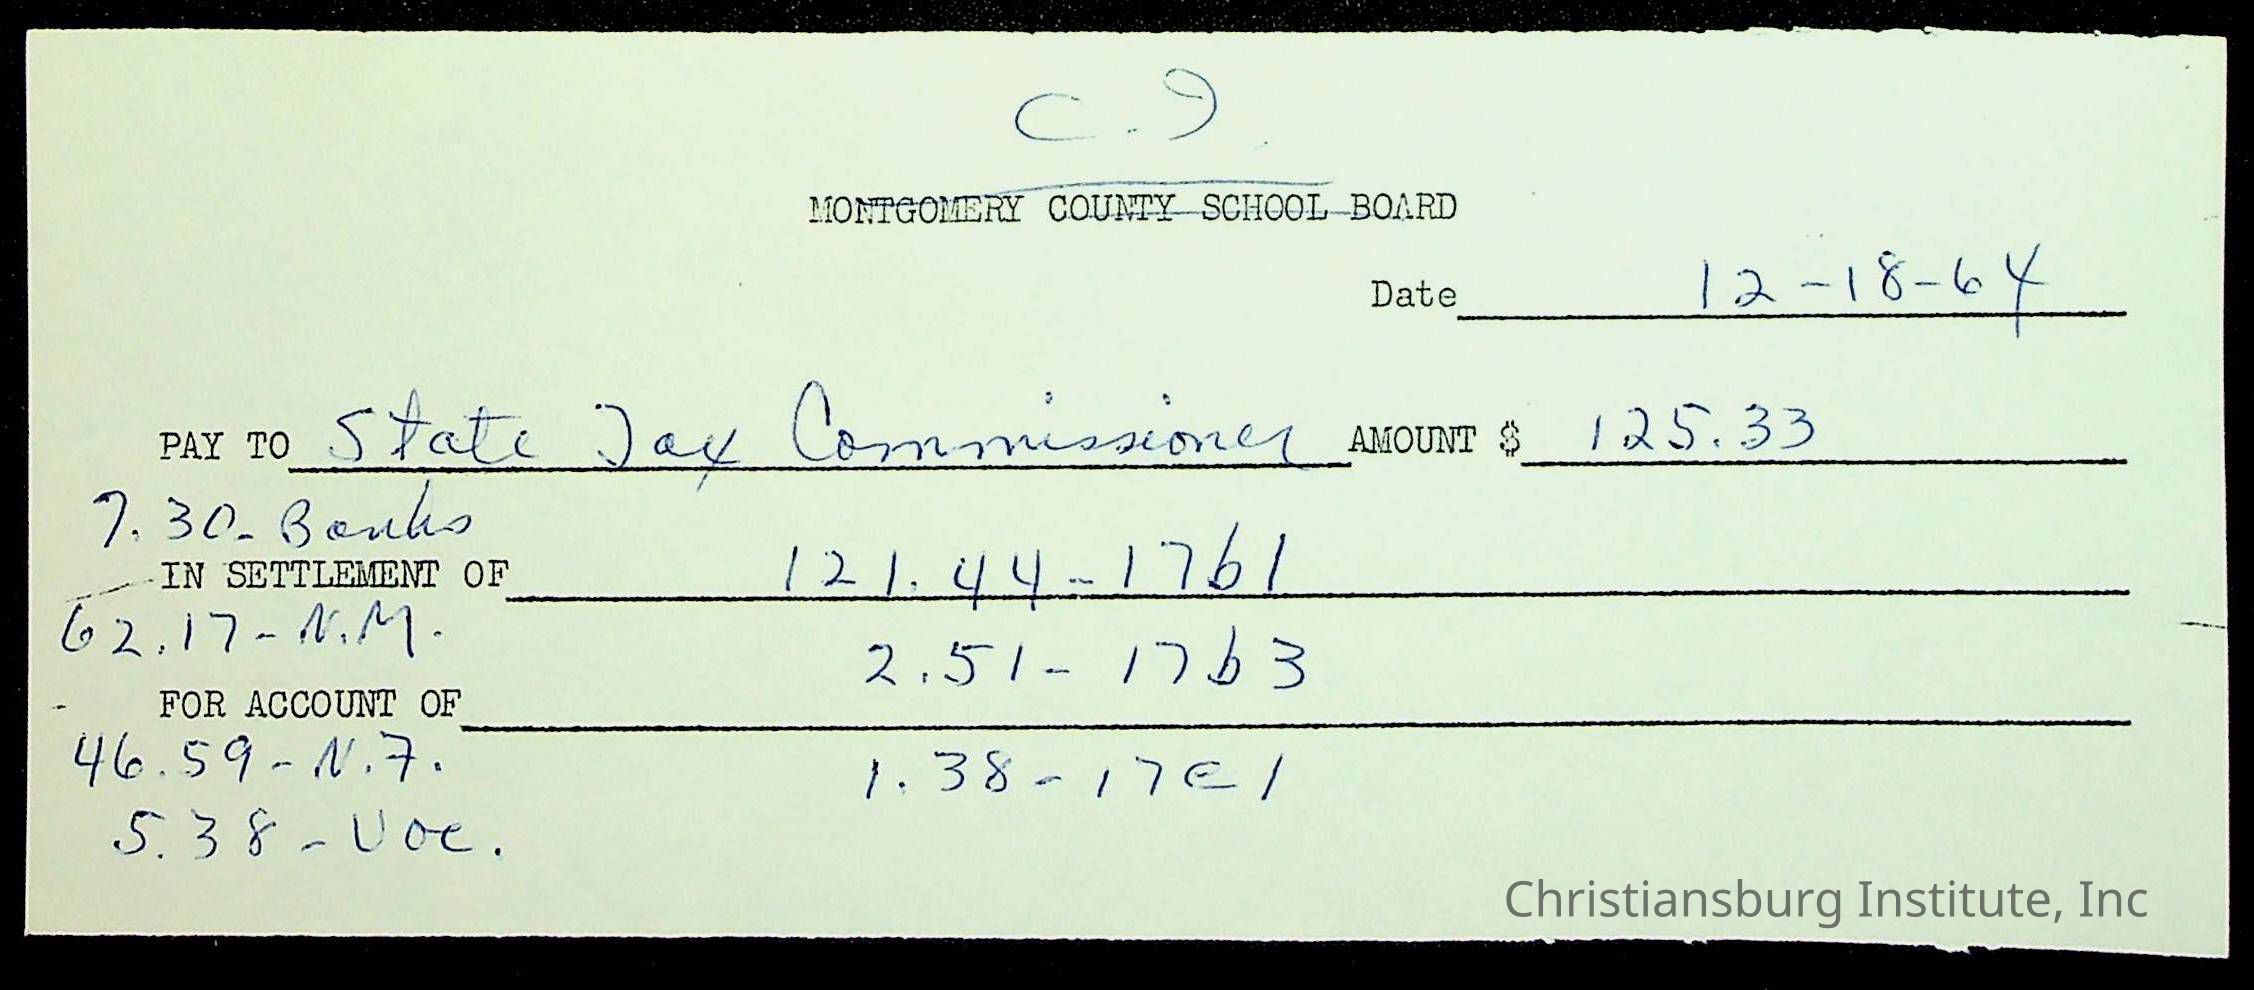 C.I.
MONTGOMERY COUNTY SCHOOL BOARD
Date 12-18-64
PAY TO State Tax Commissioner AMOUNT $ 125.33
7.30-Banks
IN SETTLEMENT OF 121.44-17b1
62.17-N.M.
2.51-17b3
FOR ACCOUNT OF
46.59-N.F.
1.38-17e1
5.38-Voc.
Christiansburg Institute, Inc